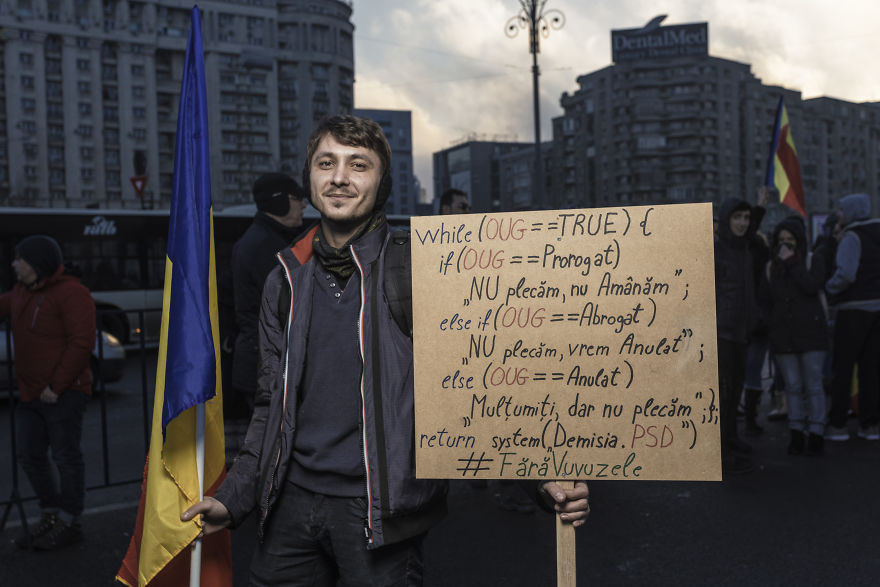 DentalMed
while (OUG==TRUE) {
if (OUG ==Prorogat)
„NU plecăm, nu Amânăm”;
else if (OUG ==Abrogat)
„NU plecăm, vrem Anulat”;
else (OUG ==Anulat)
„Mulțumiți, dar nu plecăm”;};
return system(„Demisia.PSD”)
# FărăVuvuzele